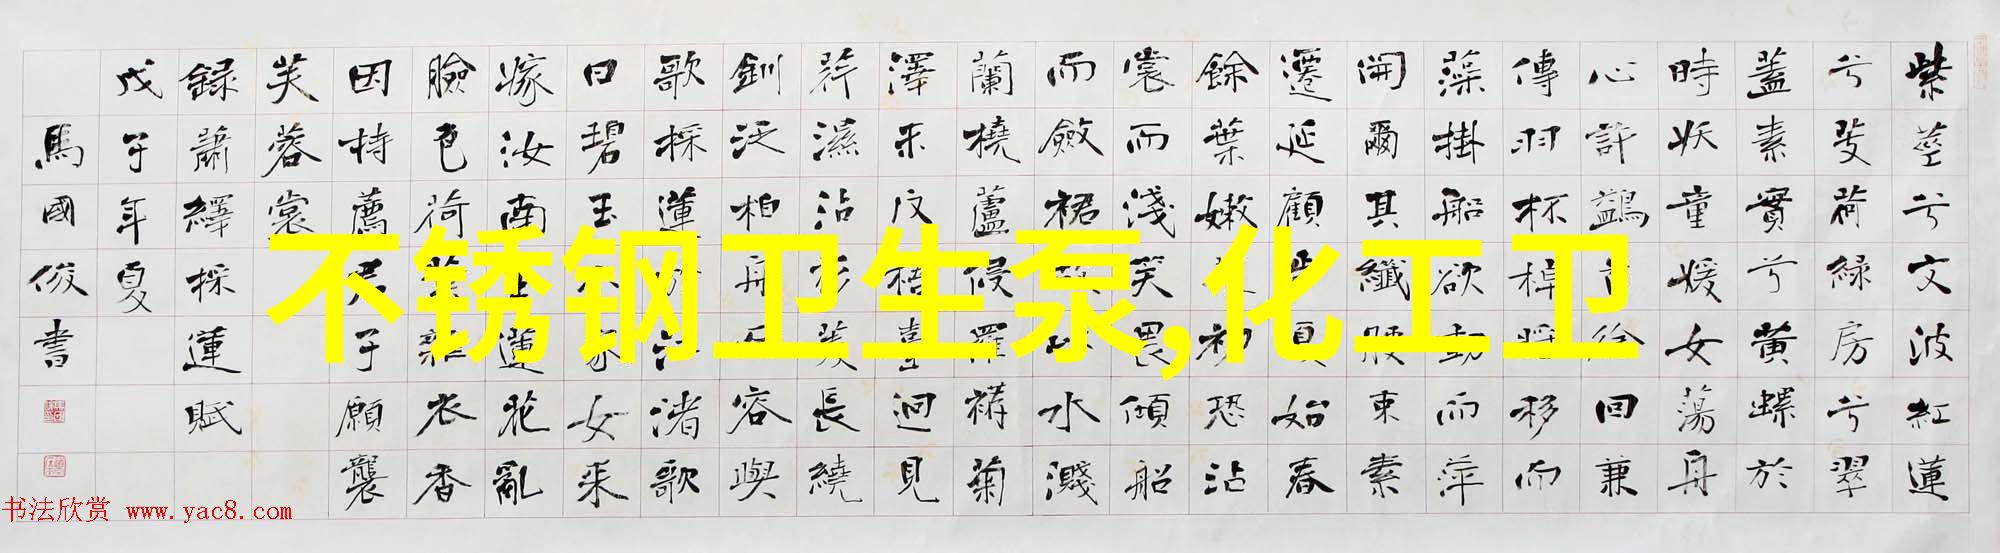 紫莖兮文波紅蓮
兮芰荷綠房兮翠
蓋素實兮黃螺於
時妖童媛女蕩舟
心許鷁首徐回兼
傳羽杯棹將移而
藻掛船欲動而萍
開爾其纖腰束素
遷延顧步夏始春
餘葉嫩花初恐沾
裳而淺笑畏傾船
而斂裾故以水濺
蘭橈蘆侵羅褠菊
澤未反梧臺迥見
荇濕沾衫菱長繞
釧泛柏舟而容與
歌採蓮於江渚歌
曰碧玉小家女来
嫁汝南王蓮花亂
臉色荷葉雜衣香
因持薦君子願襲
芙蓉裳
録蕭繹採蓮賦
戊子年夏
馬國俊書
不锈钢卫生泵,化工卫
书法欣赏 www.yac8.com